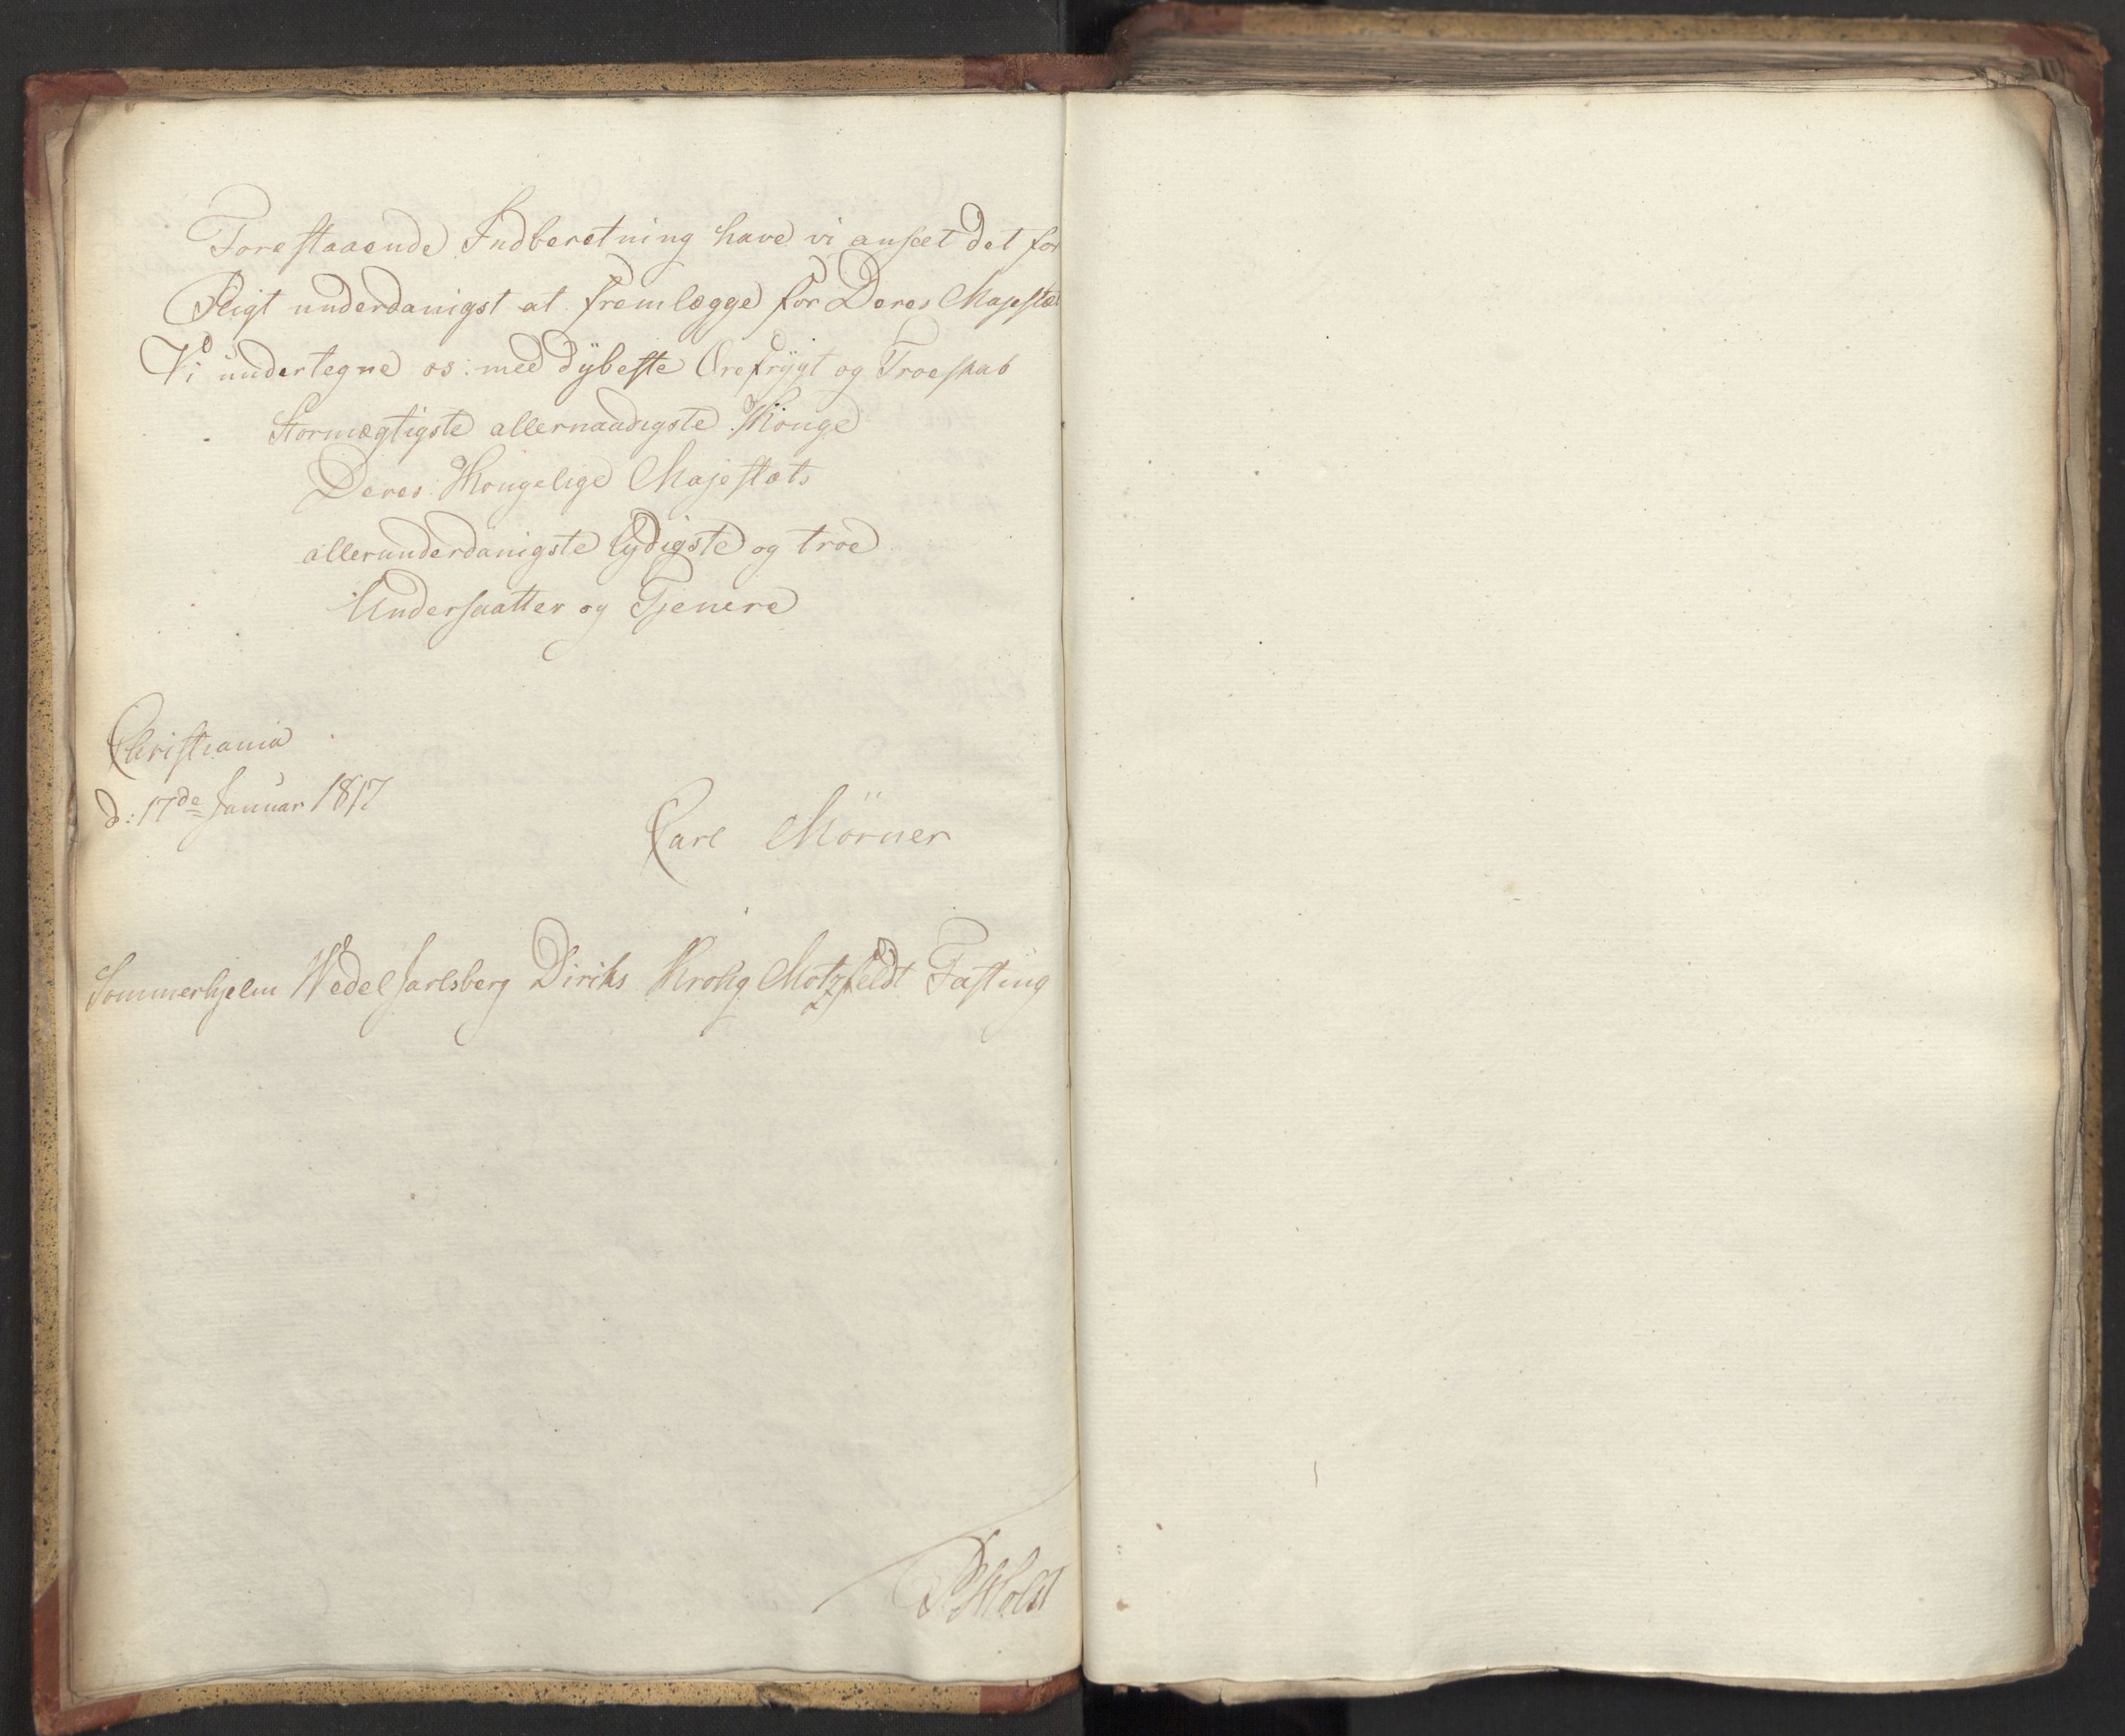 Forestaaende Indberetning have vi anseet det for
Pligt underdanigst at fremlægge for Deres Majestæt
Vi undertegne os med dybeste Ærefrygt og Troeskab
Stormægtigste allernaadigste Konge
Deres Kongelige Majestæts
allerunderdanigste lydigste og troe
Undersaatter og Tjenere
Christiania
d: 17de Januar 1817
Carl Mörner
Sommerhjelm Wedel Jarlsberg Diriks Krohg Motzfeldt Fasting
Holst